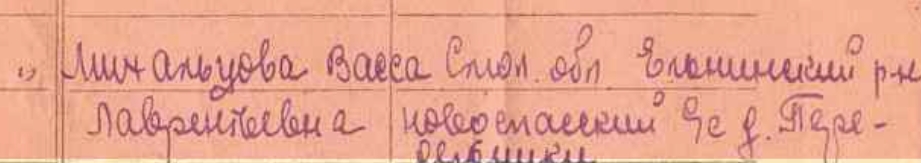 " Михальцова Васса Смол. обл Ельнинский р-н
Лаврентьевна Новоспасский с/с д. Пере-
дельники